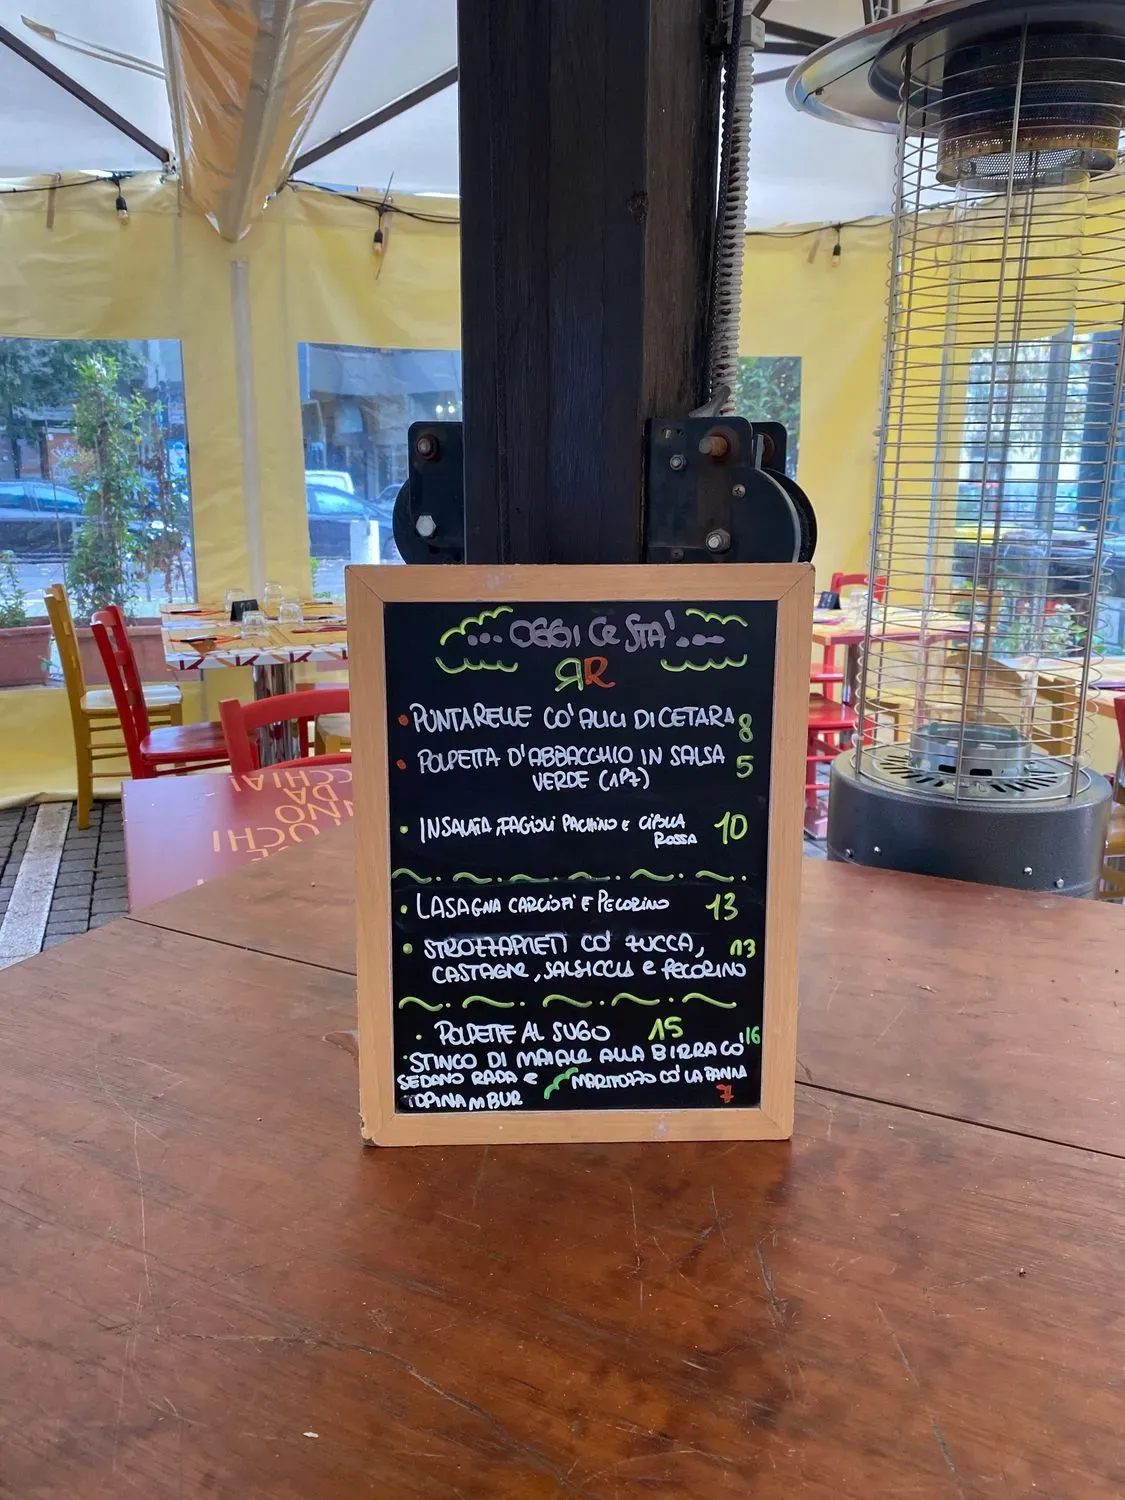 ... OGGI CE STA' ...
RR
• PUNTARELLE CO' ALICI DI CETARA 8
• POLPETTA D'ABBACCHIO IN SALSA 5
VERDE (1PZ)
• INSALATA, FAGIOLI PACHINO E CIPOLLA 10
ROSSA
• LASAGNA CARCIOFI E PECORINO 13
• STROZZAPRETI CO' ZUCCA, 13
CASTAGNE, SALSICCIA E PECORINO
• POLPETTE AL SUGO 15
• STINCO DI MAIALE ALLA BIRRA CO' 16
SEDANO RAPA E
TOPINAMBUR
MARITOZZO CO' LA PANNA
7
CCHIA!
DA
INO
OCHI